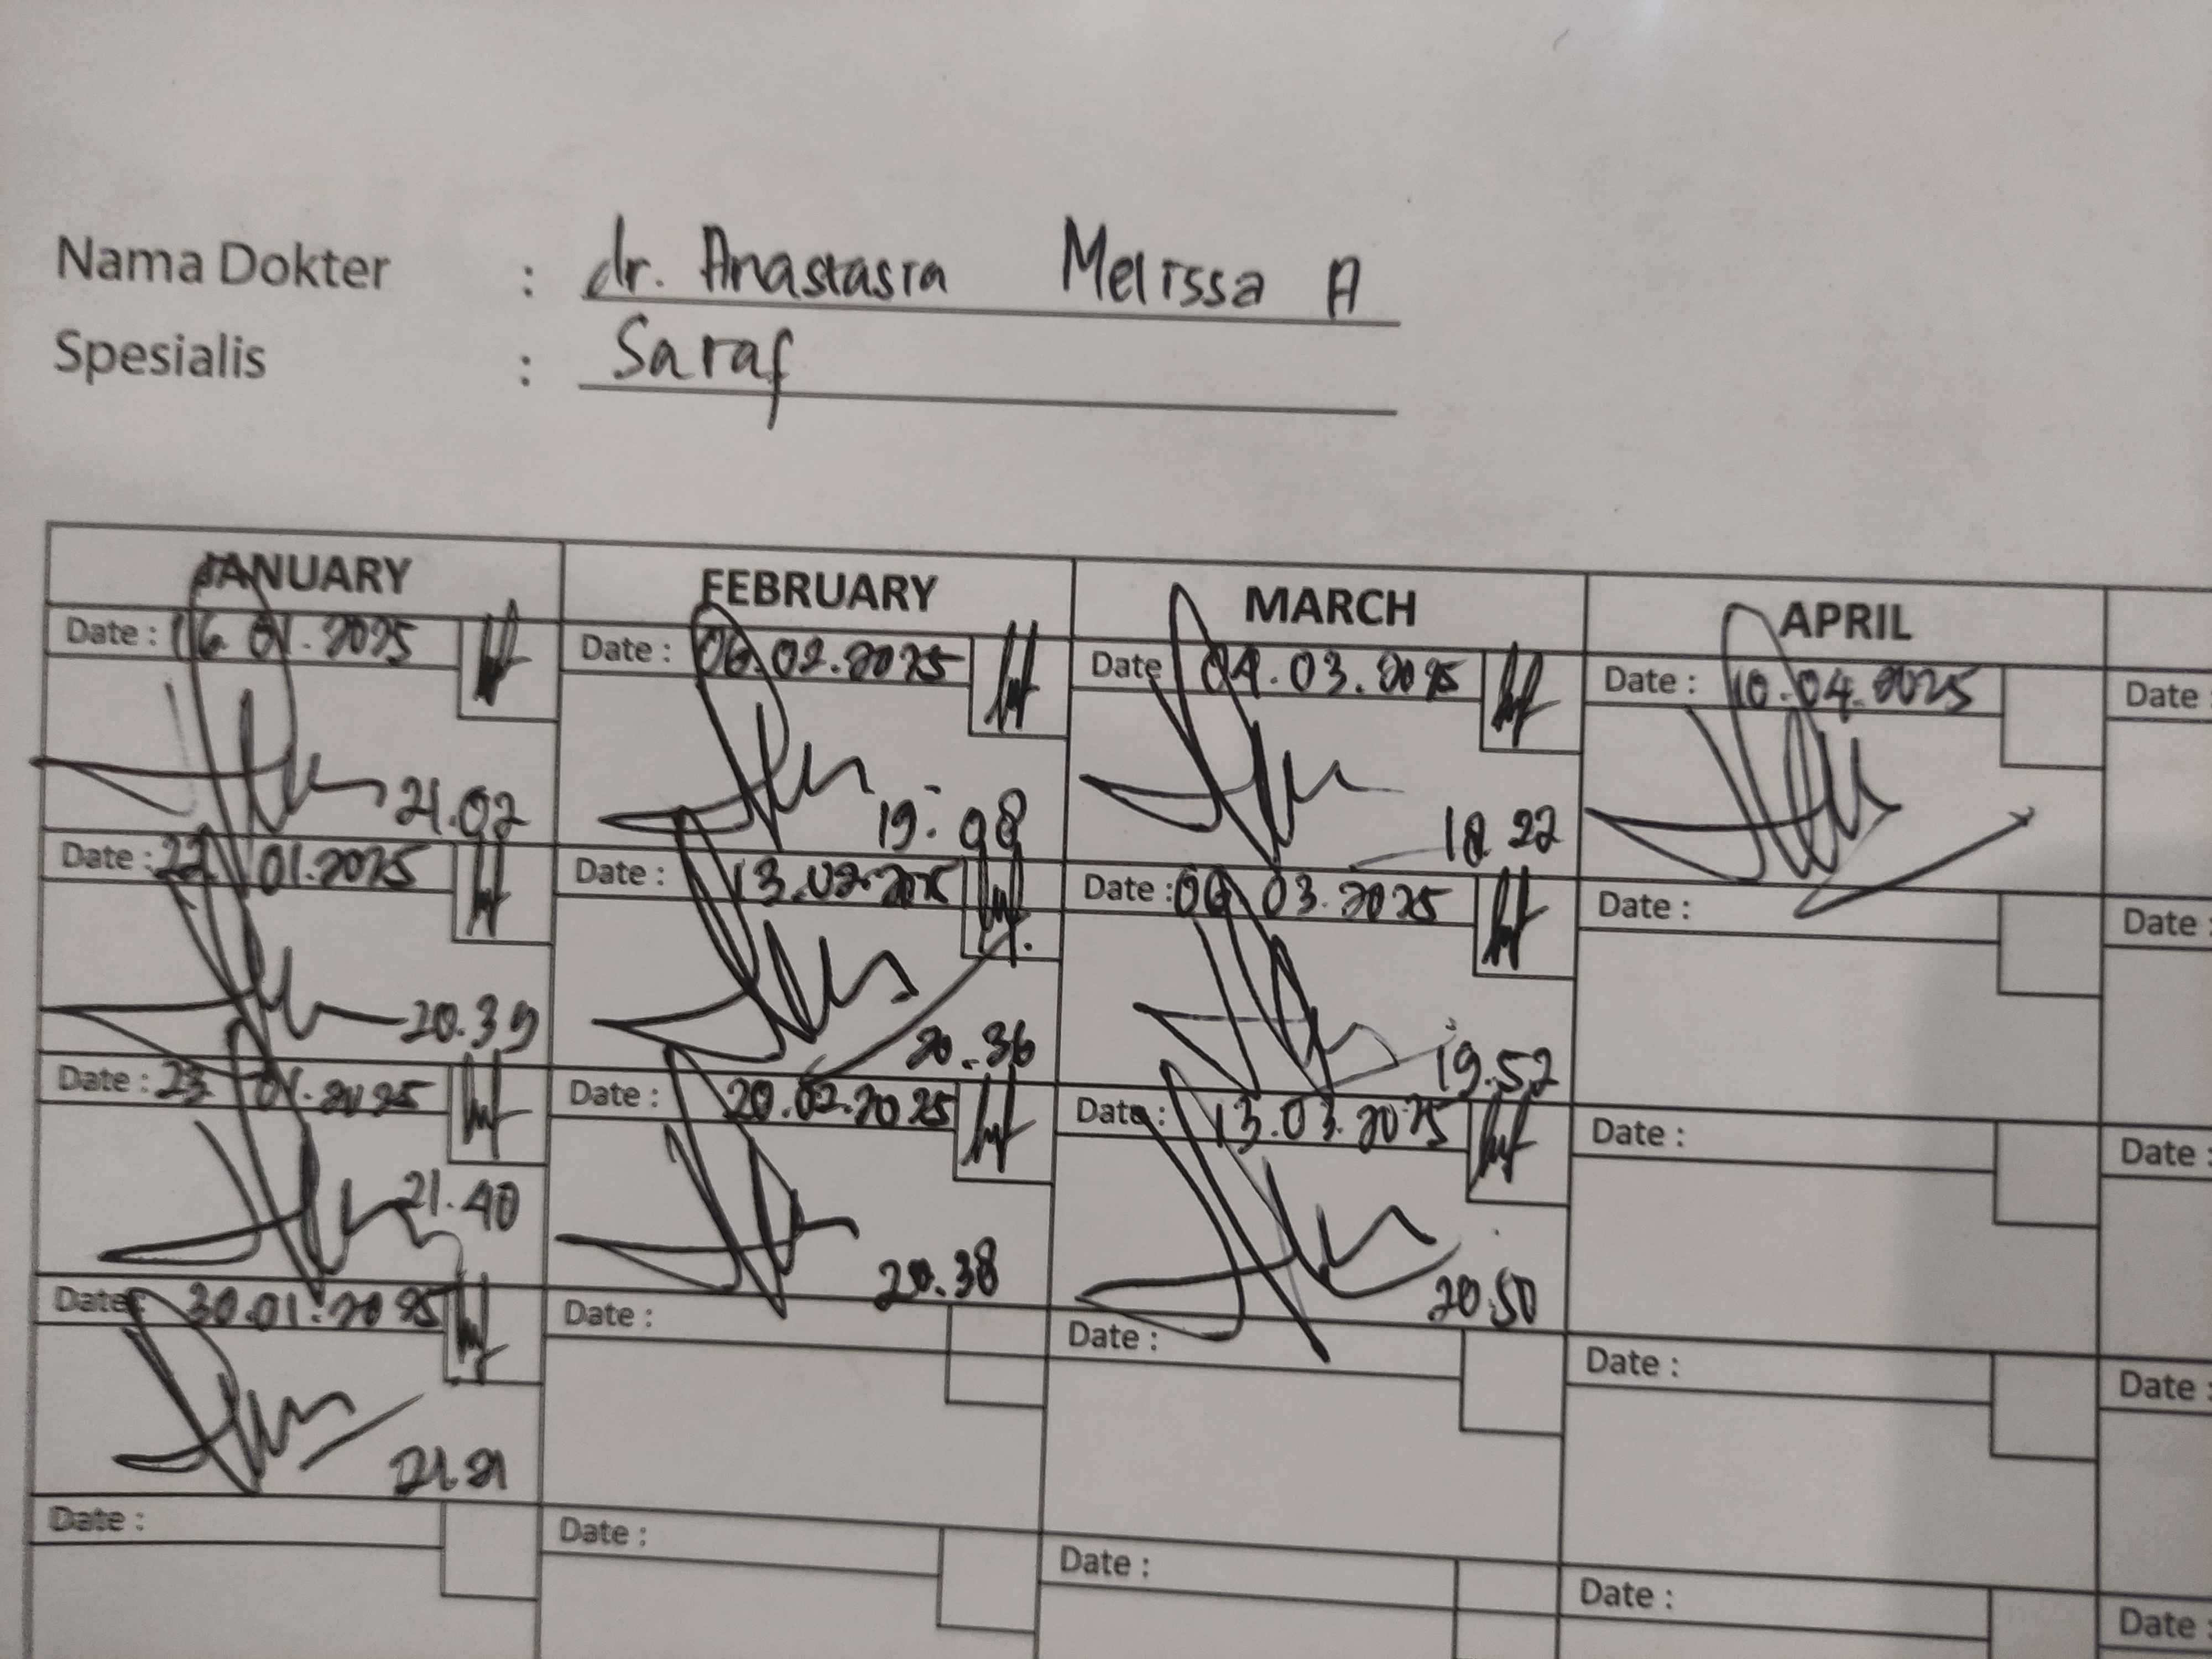 Nama Dokter : dr. Anastasia Melissa A
Spesialis : Saraf
JANUARY FEBRUARY MARCH APRIL
Date : 16.01.2025 Date : 06.02.2025 Date 04.03.2025 Date : 10.04.2025 Date :
21.02 19: 08 18 22
Date : 22 01.2025 Date : 13.02.2025 Date : 06 03.2025 Date : Date :
20.39 20.36 19.52
Date : 23 01.2025 Date : 20.02.2025 Date : 13.03.2025 Date : Date :
21.40 20.38 20.50
Date : 30.01.2025 Date : Date : Date : Date :
21.21
Date : Date : Date : Date : Date :